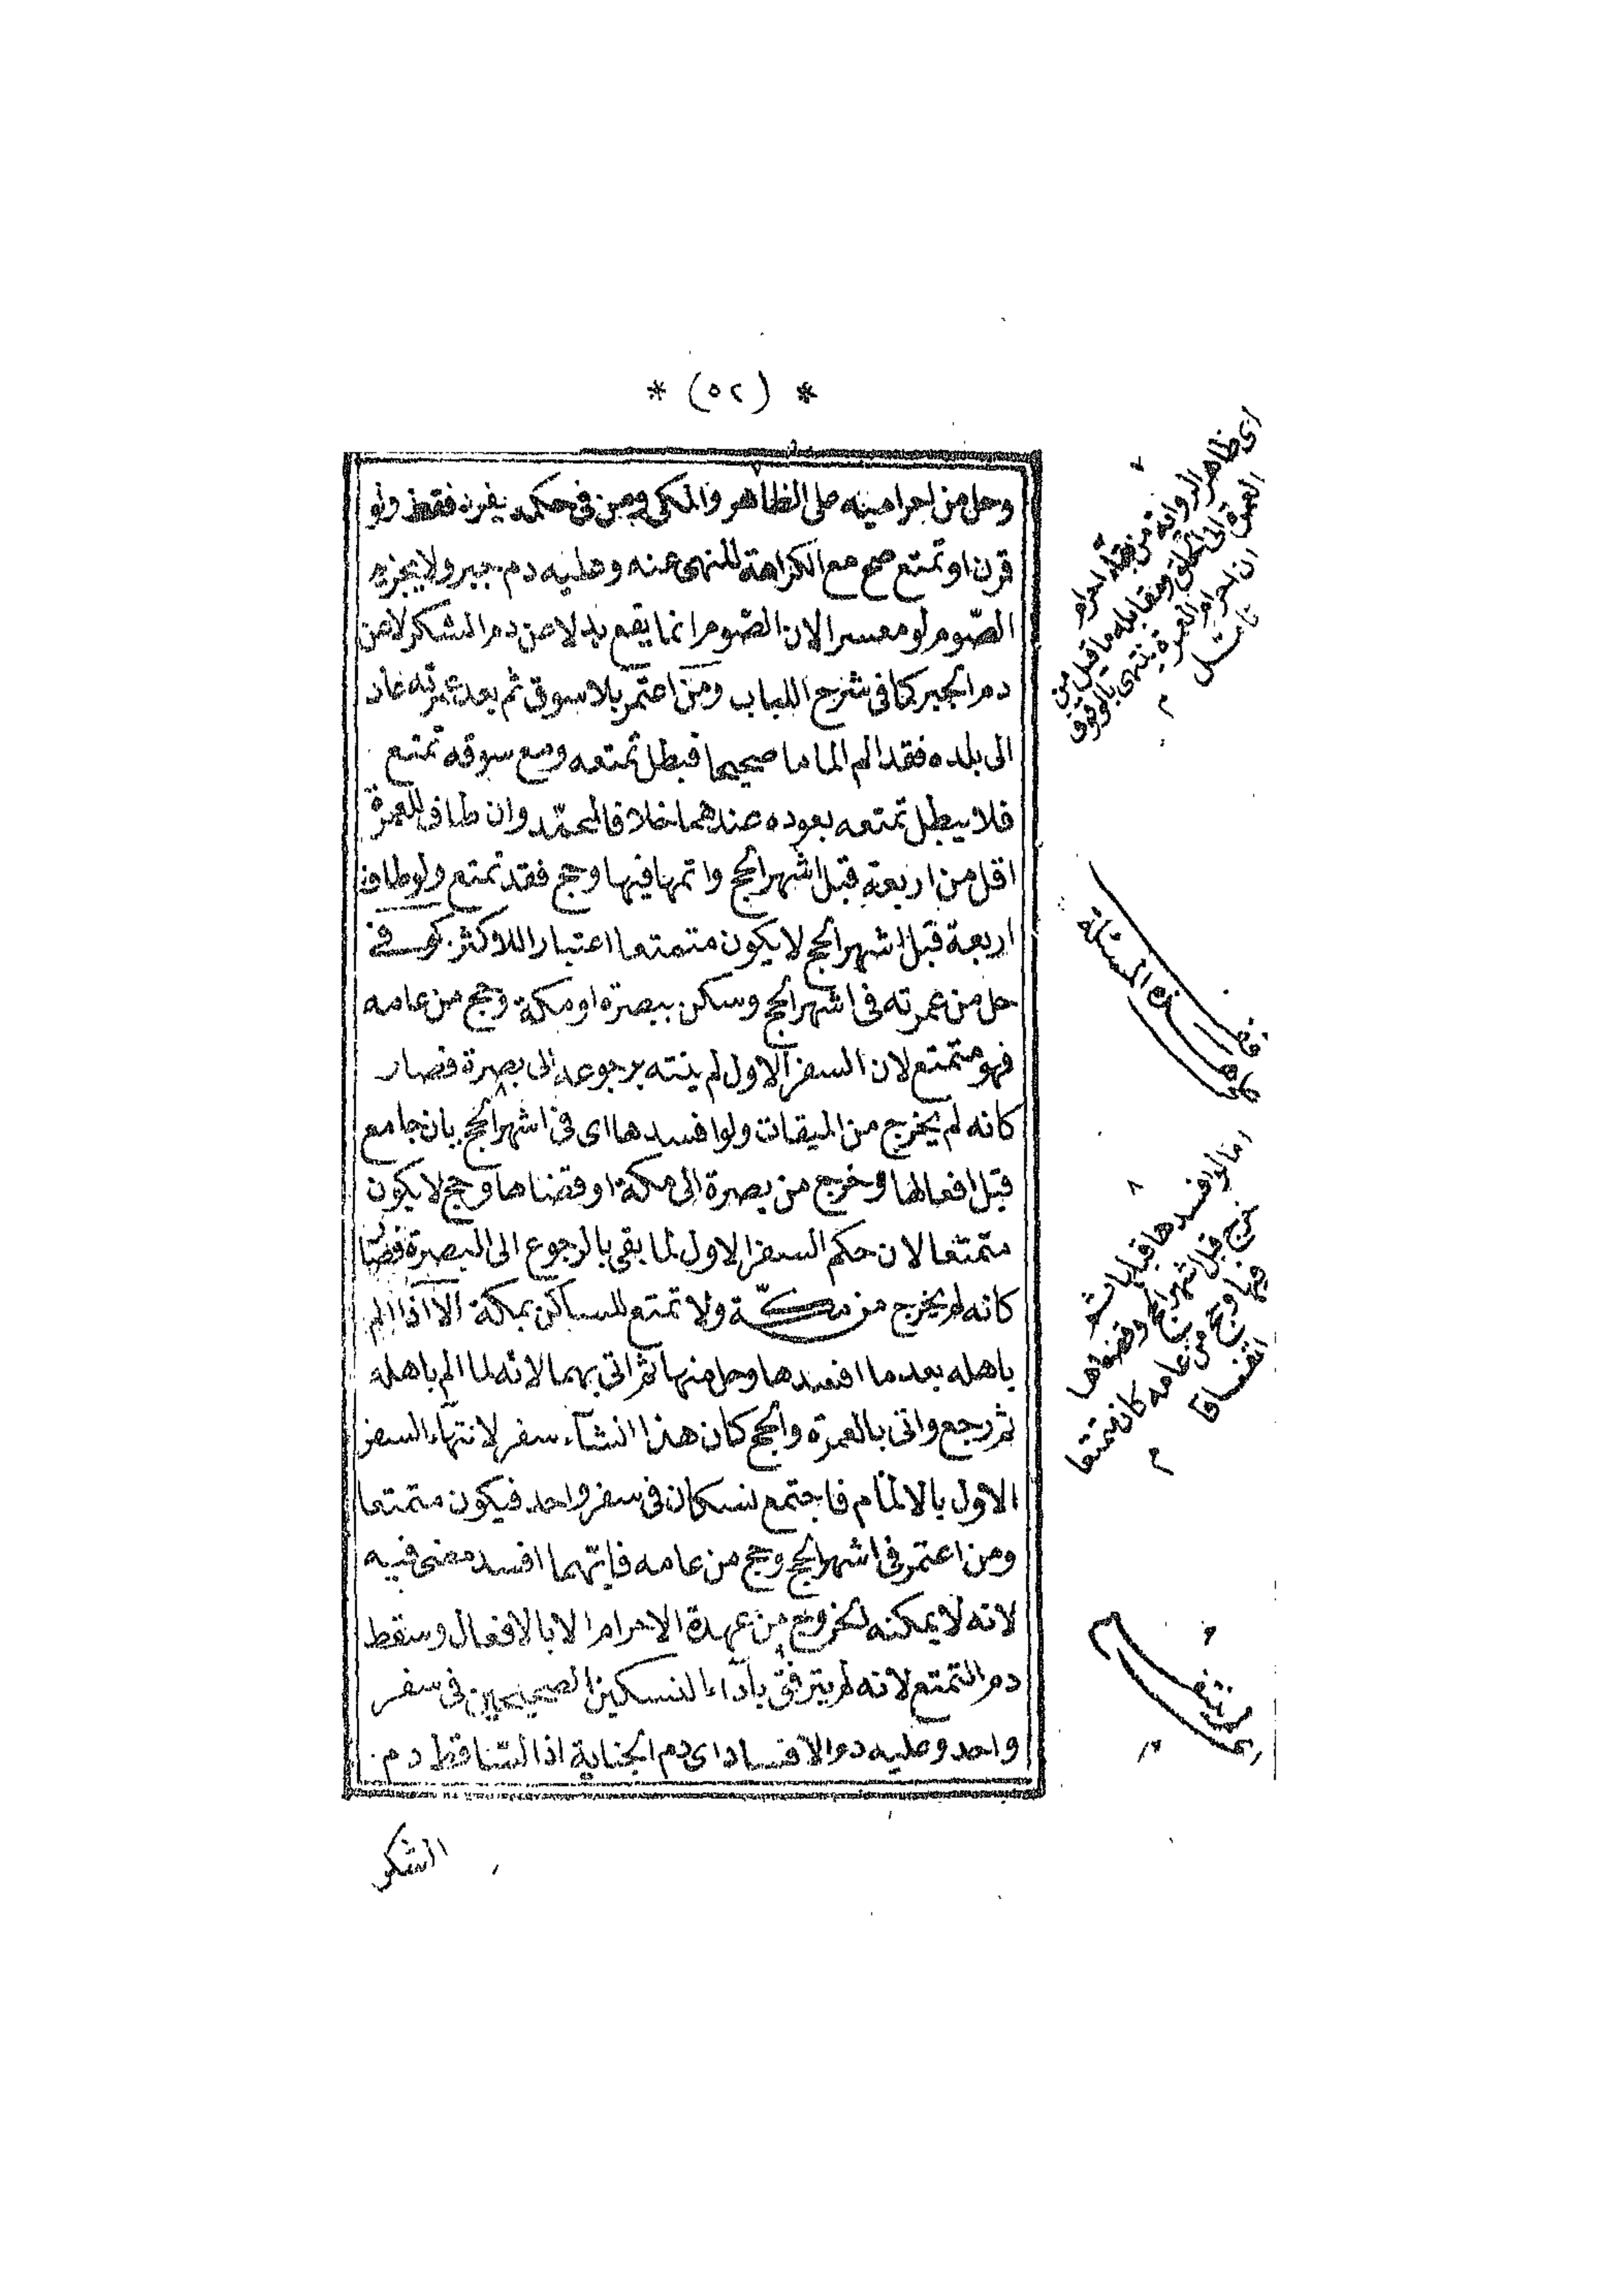 * (٥٢) *
وحل من احراميه على الظاهر والمكى ومن فى حكمه يفرد فقط ولو
قرن او تمتع صح مع الكراهة للنهى عنه وعليه دم جبر ولا يجزيه
الصّوم لو معسرا لان الصّوم انما يقع بدلا عن دم الشكر لا عن
دم الجبر كما فى شرح اللباب ومن اعتمر بلا سوق ثم بعد عمرته عاد
الى بلده فقد الم الماما صحيحا فبطل تمتعه ومع سوقه تمتع
فلا يبطل تمتعه بعوده عندهما خلافا لمحمّد وان طاف للعمرة
اقل من اربعة قبل اشهر الحج واتمها فيها وحج فقد تمتع ولو طاف
اربعة قبل اشهر الحج لا يكون متمتعا اعتبارا للاكثر كوفى
حل من عمرته فى اشهر الحج وسكن ببصرة او مكة وحج من عامه
فهو متمتع لان السفر الاول لم ينته برجوعه الى بصرة فصار
كانه لم يخرج من الميقات ولو افسدها اى فى اشهر الحج بان جامع
قبل افعالها وخرج من بصرة الى مكة او قضاها وحج لا يكون
متمتعا لان حكم السفر الاول لما بقى بالرجوع الى البصرة فصار
كانه لم يخرج من مكّة ولا تمتع للساكن بمكة الا اذا الم
باهله بعد ما افسدها وحل منها ثم اتى بهما لانه لما الم باهله
ثم رجع واتى بالعمرة والحج كان هذا انشآء سفر لانتهاء السفر
الاول بالالمام فاجتمع نسكان فى سفر واحد فيكون متمتعا
ومن اعتمر فى اشهر الحج وحج من عامه فايهما افسد مضى فيه
لانه لا يمكنه الخروج من عهدة الاحرام الا بالافعال وسقط
دم التمتع لانه لم يترفق بآداء النسكين الصحيحين فى سفر
واحد وعليه دم الافساد اى دم الجناية اذا الساقط دم
الشكر
اى ظاهر الرواية من بقاء احرام
العمرة الى الحلق ومقابله ما قيل من
ان احرام العمرة ينتهى بالوقوف
تأمل
م
اما لو افسدها قبل
خرج قبل اشهر الحج وقضاها
فيها وحج من عامه كان متمتعا
اتفاقا
م